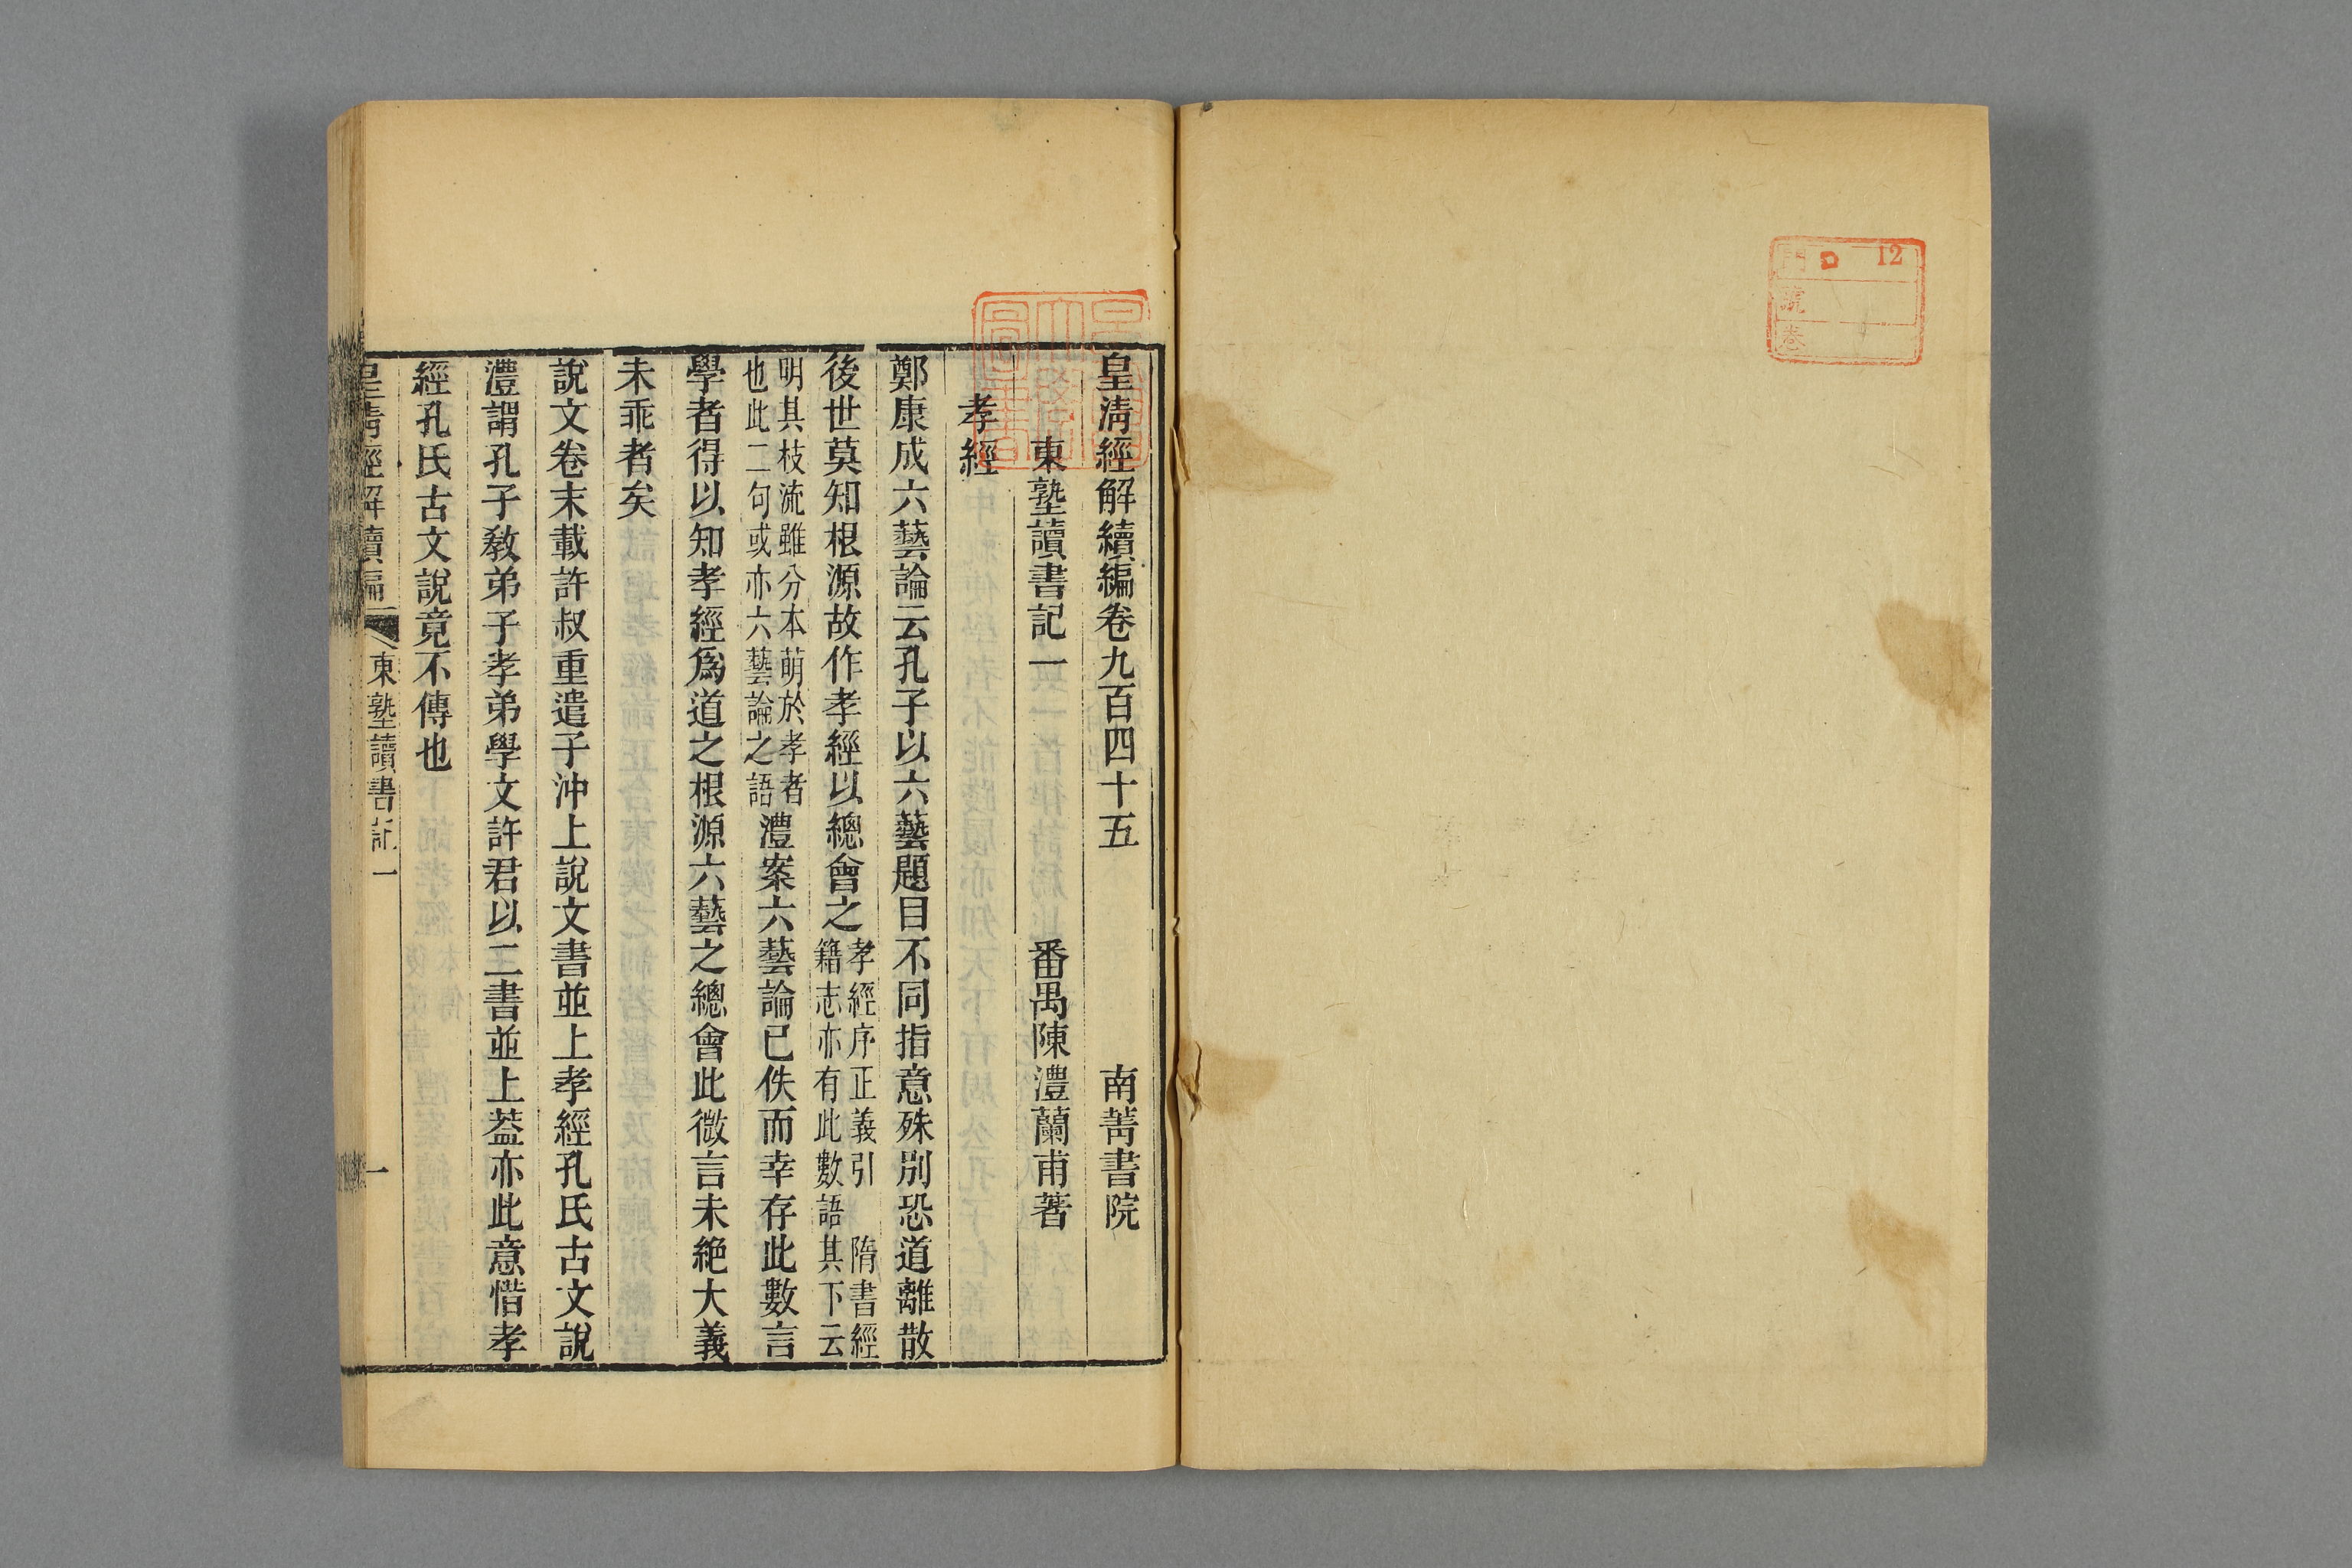 12
門
號
卷
皇清經解續編卷九百四十五 南菁書院
東塾讀書記一 番禺陳澧蘭甫著
孝經
鄭康成六藝論云孔子以六藝題目不同指意殊別恐道離散
後世莫知根源故作孝經以總會之孝經序正義引 隋書經籍志亦有此數語其下云
明其枝流雖分本萌於孝者也此二句或亦六藝論之語澧案六藝論已佚而幸存此數言
學者得以知孝經爲道之根源六藝之總會此微言未絶大義
未乖者矣
說文卷末載許叔重遣子沖上說文書並上孝經孔氏古文說
澧謂孔子敎弟子孝弟學文許君以二書並上葢亦此意惜孝
經孔氏古文說竟不傳也
皇清經解續編 東塾讀書記一 一